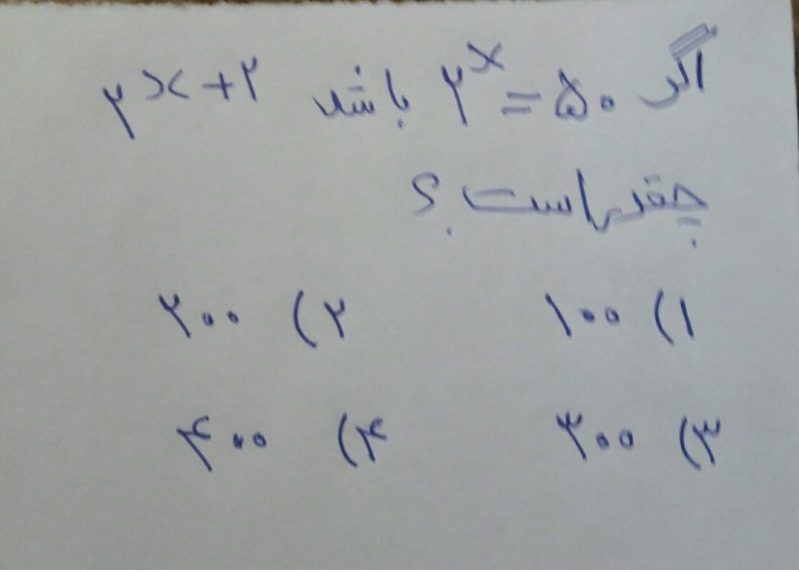 اگر ۲^x = ۵۰ باشد ۲^x+۲
چقدر است؟
۱) ۱۰۰ ۲) ۲۰۰
۳) ۳۰۰ ۴) ۴۰۰